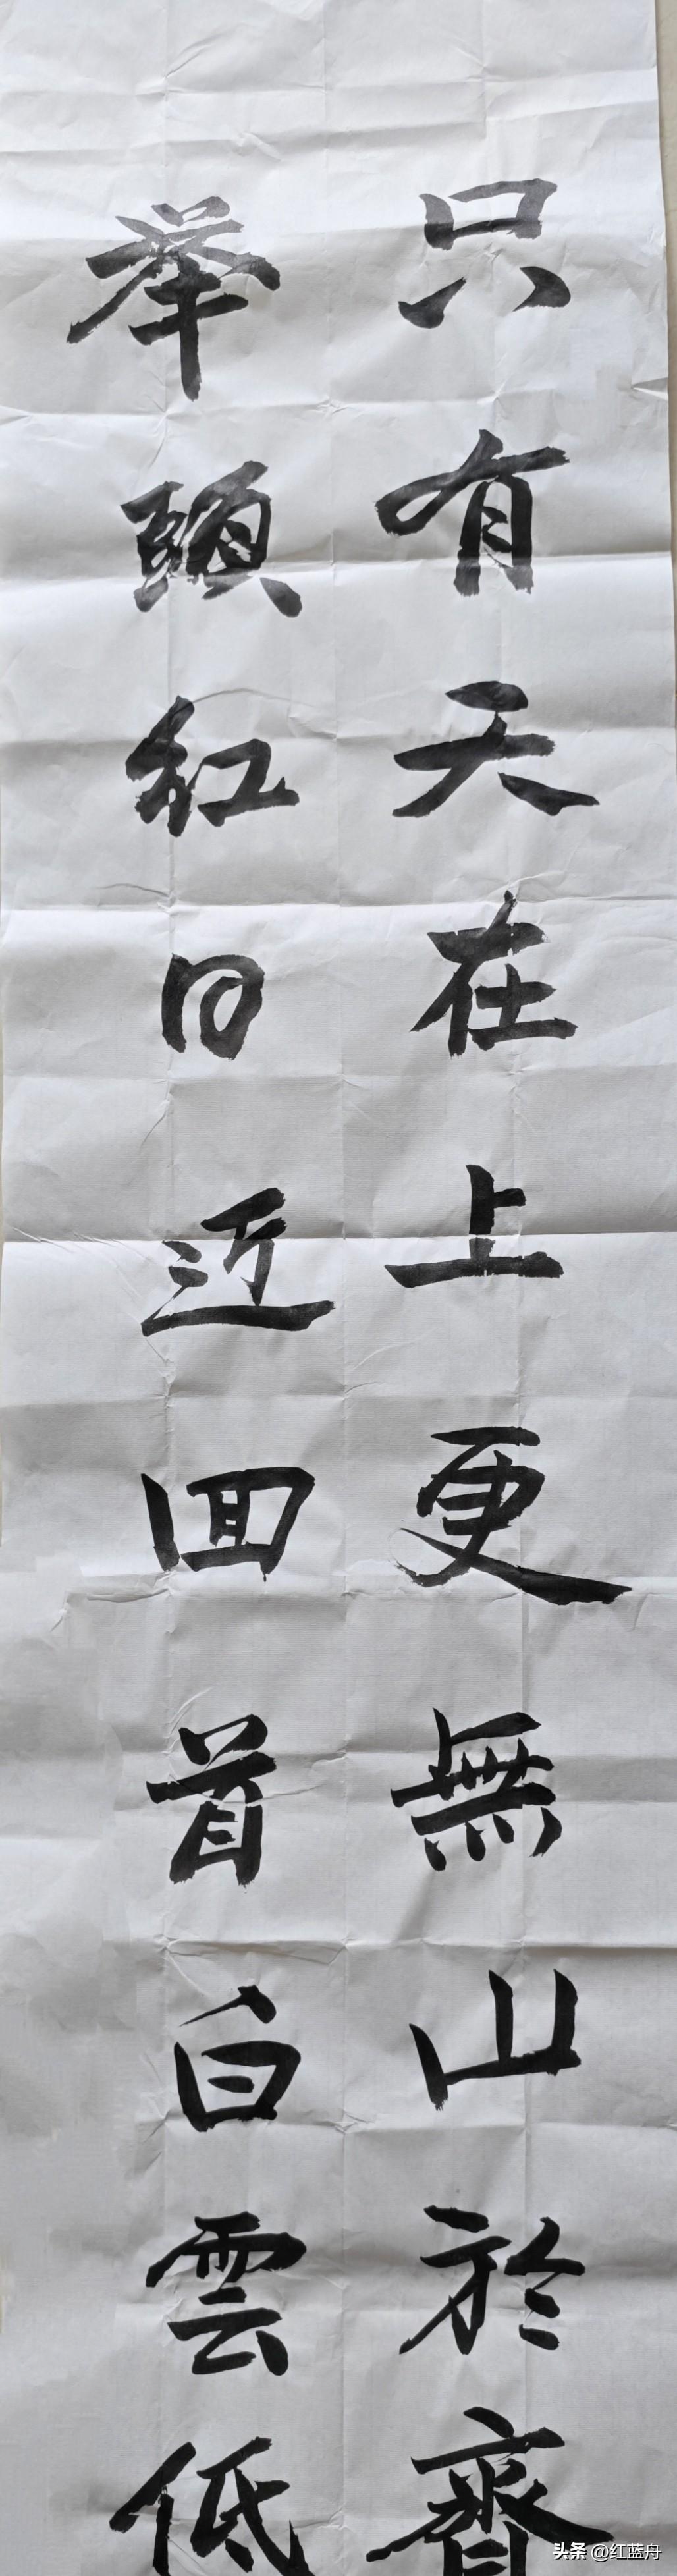 只有天在上更無山於齊
举頭紅日近回首白雲低
头条 @红蓝舟